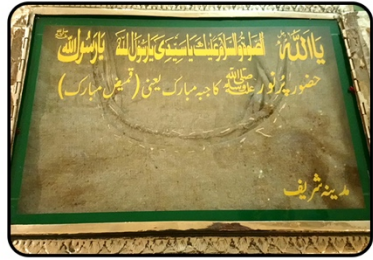 یا اللہ الصلوٰۃ والسلام علیک یا سیدی یا رسول اللہ یا رسول اللہ ﷺ
حضور پُر نور ﷺ کا جبہ مبارک یعنی (قمیض مبارک)
مدینہ شریف